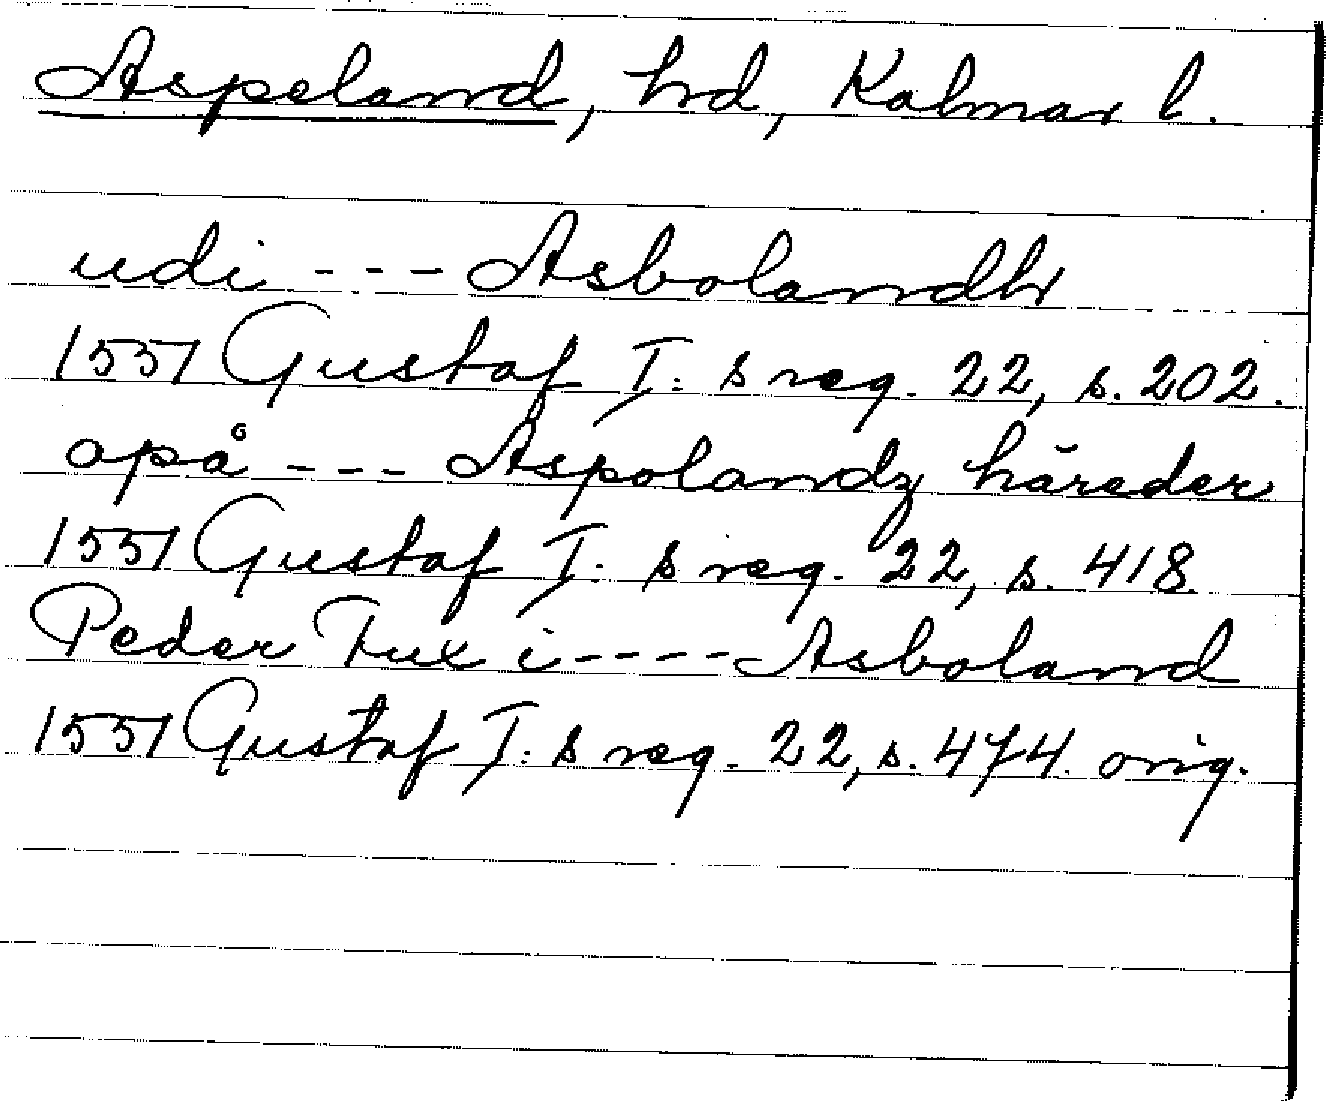 Aspeland, hd, Kalmar l.
udi --- Asbolandh
1551 Gustaf I: s reg. 22, s. 202.
opå --- Aspolandz häreder
1551 Gustaf I: s reg. 22, s. 418
Peder Fux i ---- Asboland
1551 Gustaf I: s reg. 22, s. 474. orig.